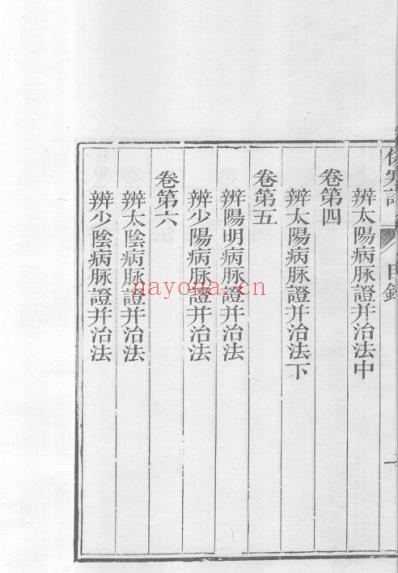 辨太陽病脉證并治法中
卷第四
辨太陽病脉證并治法下
卷第五
辨陽明病脉證并治法
辨少陽病脉證并治法
卷第六
辨太陰病脉證并治法
辨少陰病脉證并治法
nayona.cn